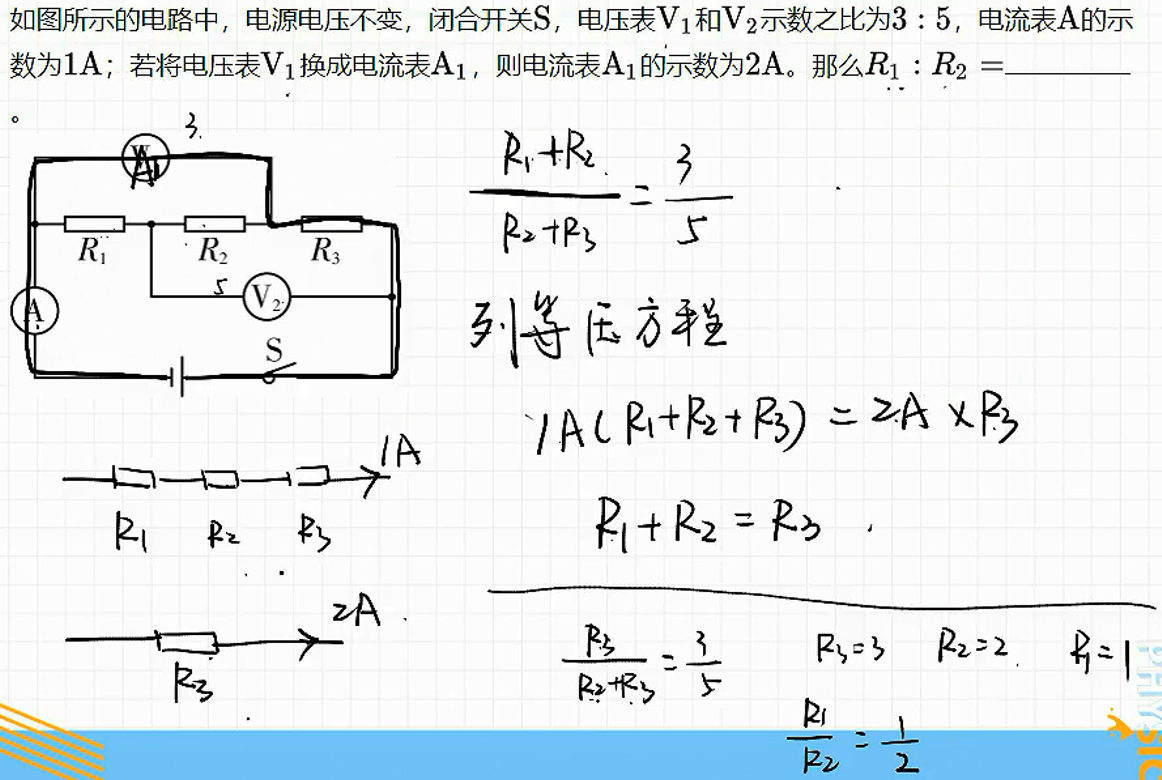 如图所示的电路中，电源电压不变，闭合开关S，电压表V₁和V₂示数之比为3：5，电流表A的示
数为1A；若将电压表V₁换成电流表A₁，则电流表A₁的示数为2A。那么R₁：R₂ =________
。
3.
A₁
R₁ R₂ R₃
5
V₂
A
S
1A
R₁ R₂ R₃
2A
R₃
(R₁+R₂)/(R₂+R₃) = 3/5
列等压方程
1A(R₁+R₂+R₃) = 2A×R₃
R₁+R₂=R₃
R₃/(R₂+R₃) = 3/5 R₃=3 R₂=2 R₁=1
R₁/R₂ = 1/2